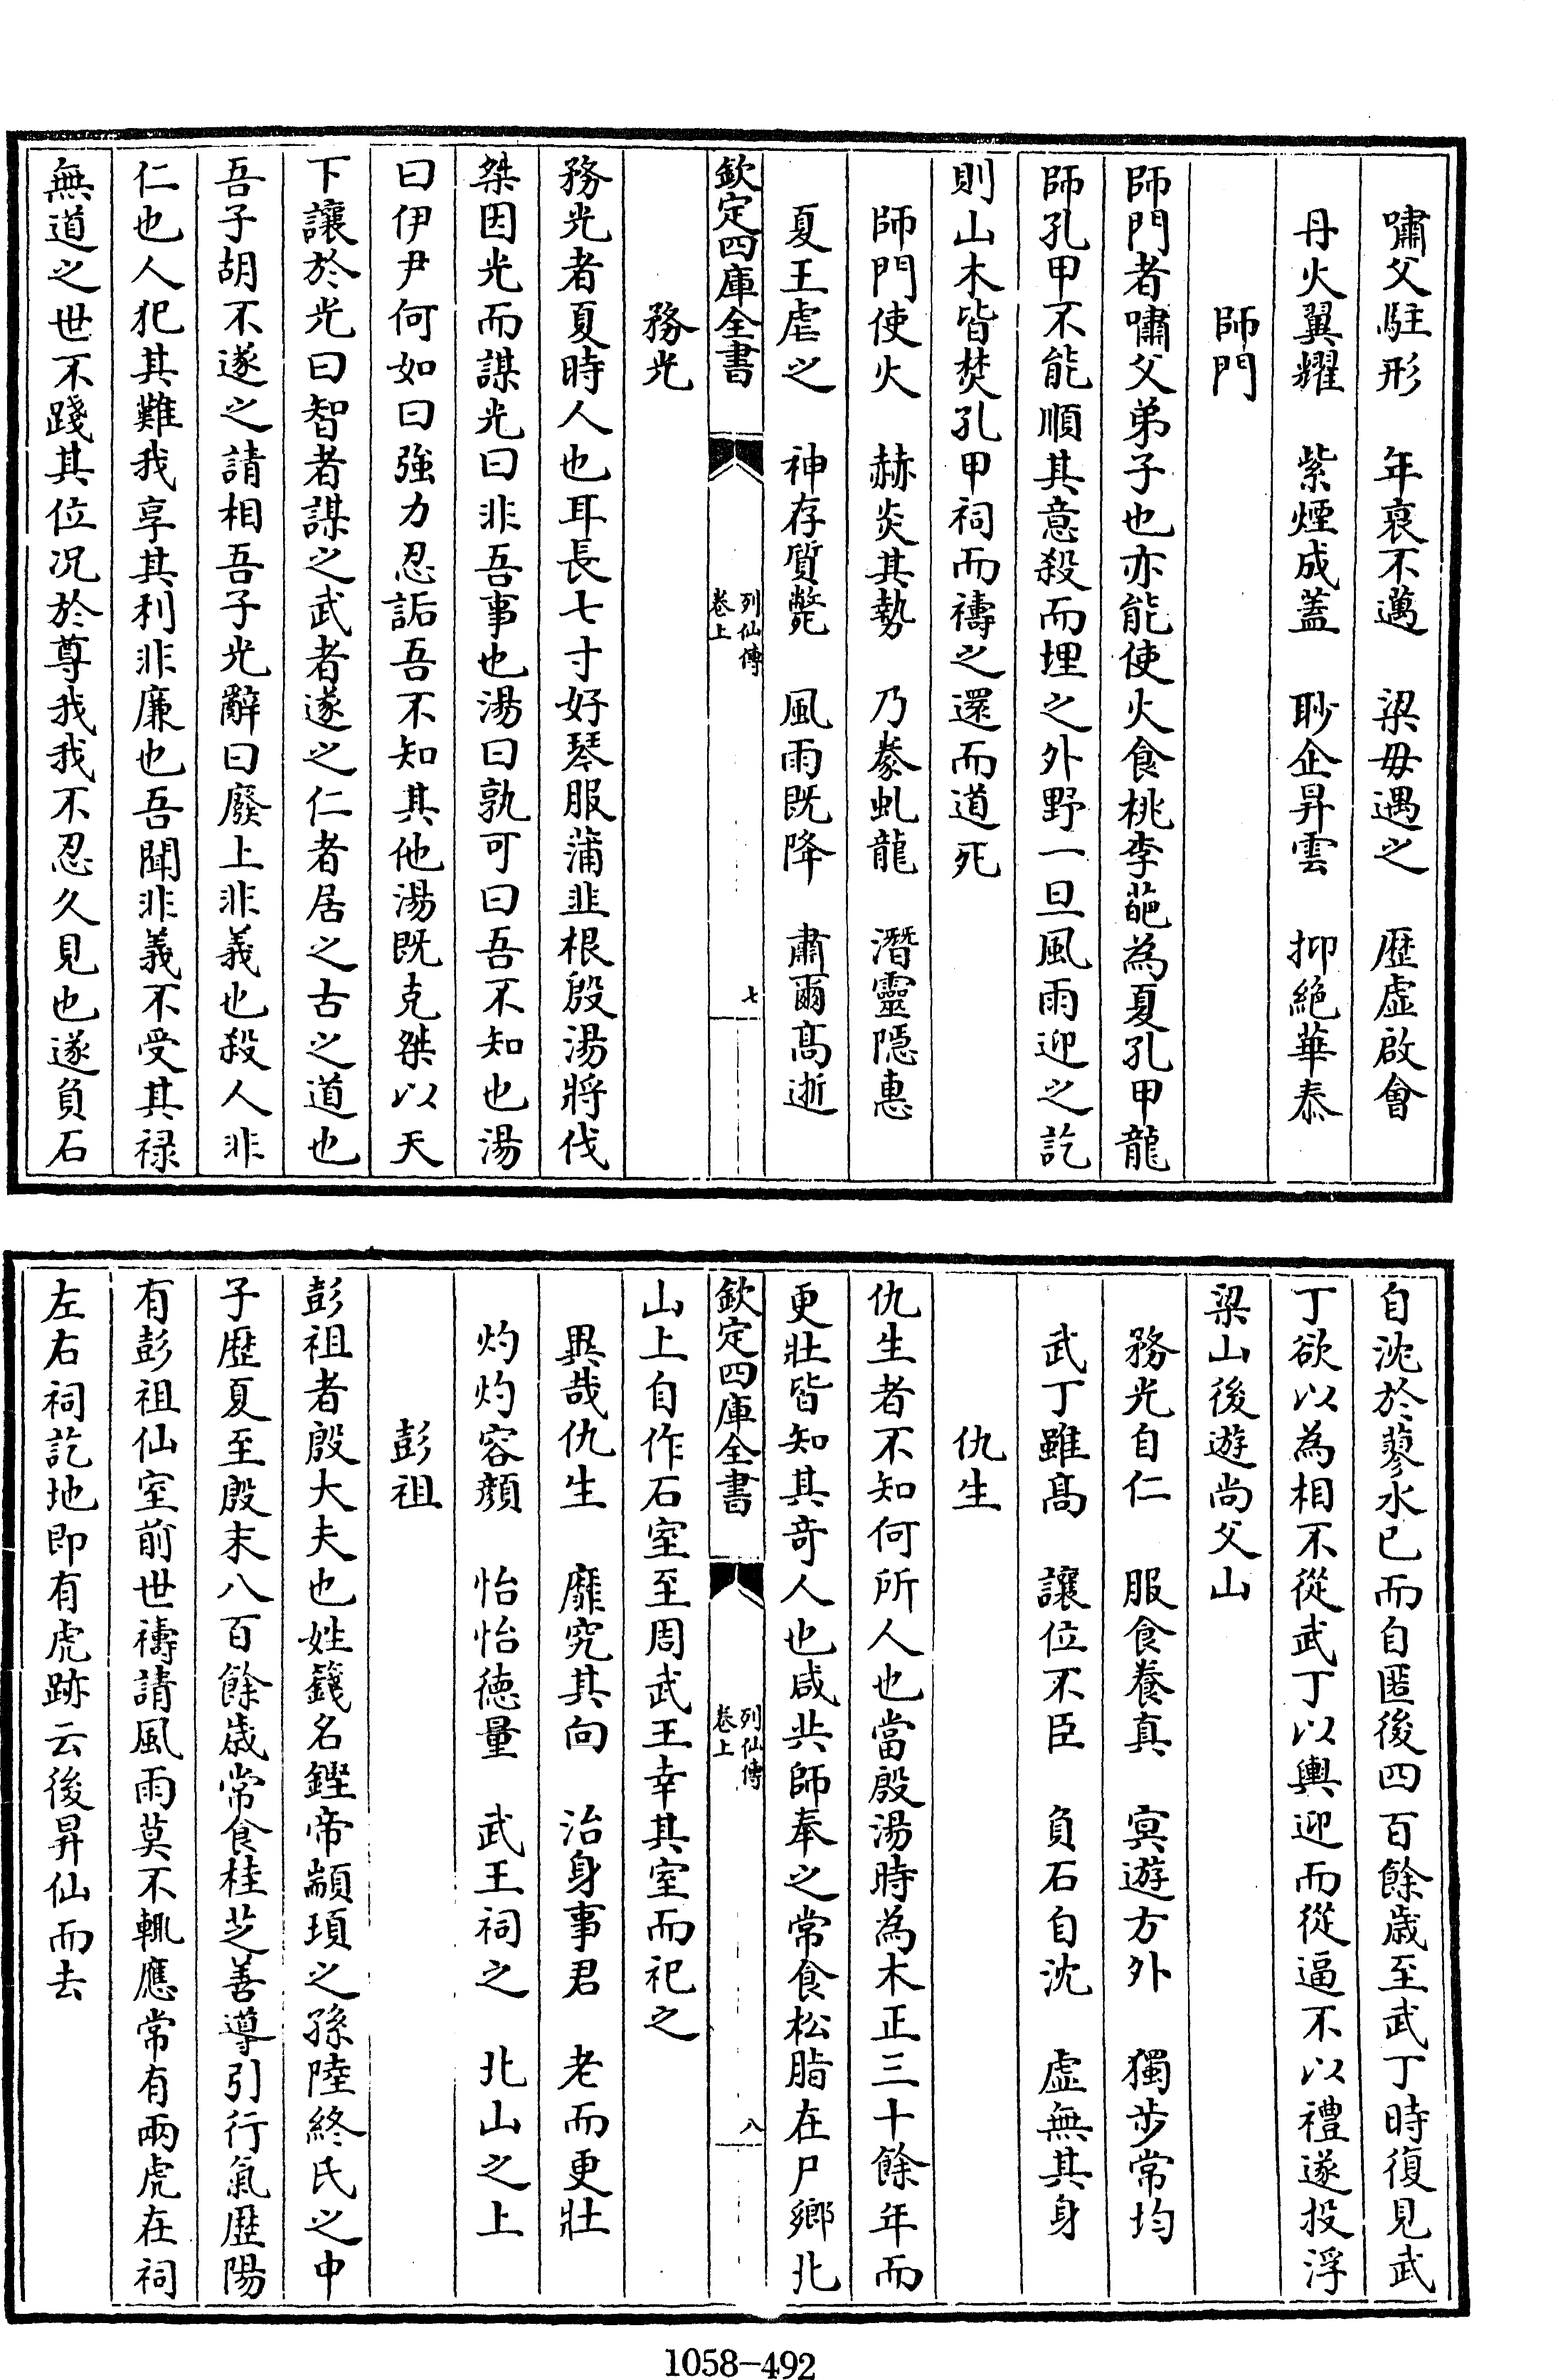 嘯父駐形　年衰不邁　梁母遇之　歴虚啟會
丹火翼耀　紫煙成蓋　眇企昇雲　抑絶華泰
師門
師門者嘯父弟子也亦能使火食桃李葩為夏孔甲龍
師孔甲不能順其意殺而埋之外野一旦風雨迎之訖
則山木皆焚孔甲祠而禱之還而道死
師門使火　赫炎其勢　乃豢虬龍　潛靈隠惠
夏王虐之　神存質斃　風雨既降　肅爾髙逝
欽定四庫全書　列仙傳卷上　七
務光
務光者夏時人也耳長七寸好琴服蒲韭根殷湯將伐
桀因光而謀光曰非吾事也湯曰孰可曰吾不知也湯
曰伊尹何如曰強力忍詬吾不知其他湯既克桀以天
下讓於光曰智者謀之武者遂之仁者居之古之道也
吾子胡不遂之請相吾子光辭曰廢上非義也殺人非
仁也人犯其難我享其利非廉也吾聞非義不受其禄
無道之世不踐其位况於尊我我不忍久見也遂負石
自沈於蓼水已而自匿後四百餘歳至武丁時復見武
丁欲以為相不從武丁以輿迎而從逼不以禮遂投浮
梁山後遊尚父山
務光自仁　服食養真　冥遊方外　獨步常均
武丁雖髙　讓位不臣　負石自沈　虚無其身
仇生
仇生者不知何所人也當殷湯時為木正三十餘年而
更壯皆知其奇人也咸共師奉之常食松脂在尸鄉北
欽定四庫全書　列仙傳卷上　八
山上自作石室至周武王幸其室而祀之
異哉仇生　靡究其向　治身事君　老而更壯
灼灼容顔　怡怡德量　武王祠之　北山之上
彭祖
彭祖者殷大夫也姓籛名鏗帝顓頊之孫陸終氏之中
子歴夏至殷末八百餘歳常食桂芝善導引行氣歴陽
有彭祖仙室前世禱請風雨莫不輒應常有兩虎在祠
左右祠訖地即有虎跡云後昇仙而去
1058-492